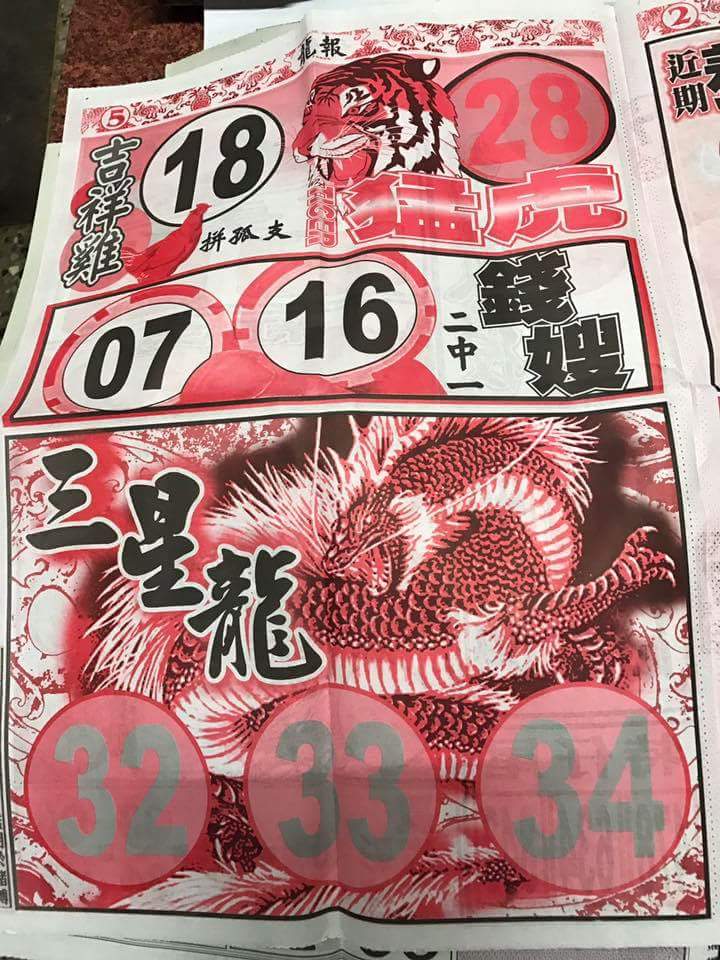 龍報
5
吉祥雞
18
拼孤支
TIGER
猛虎
28
07
16
二中一
錢嫂
三星龍
32
33
34
2
近期